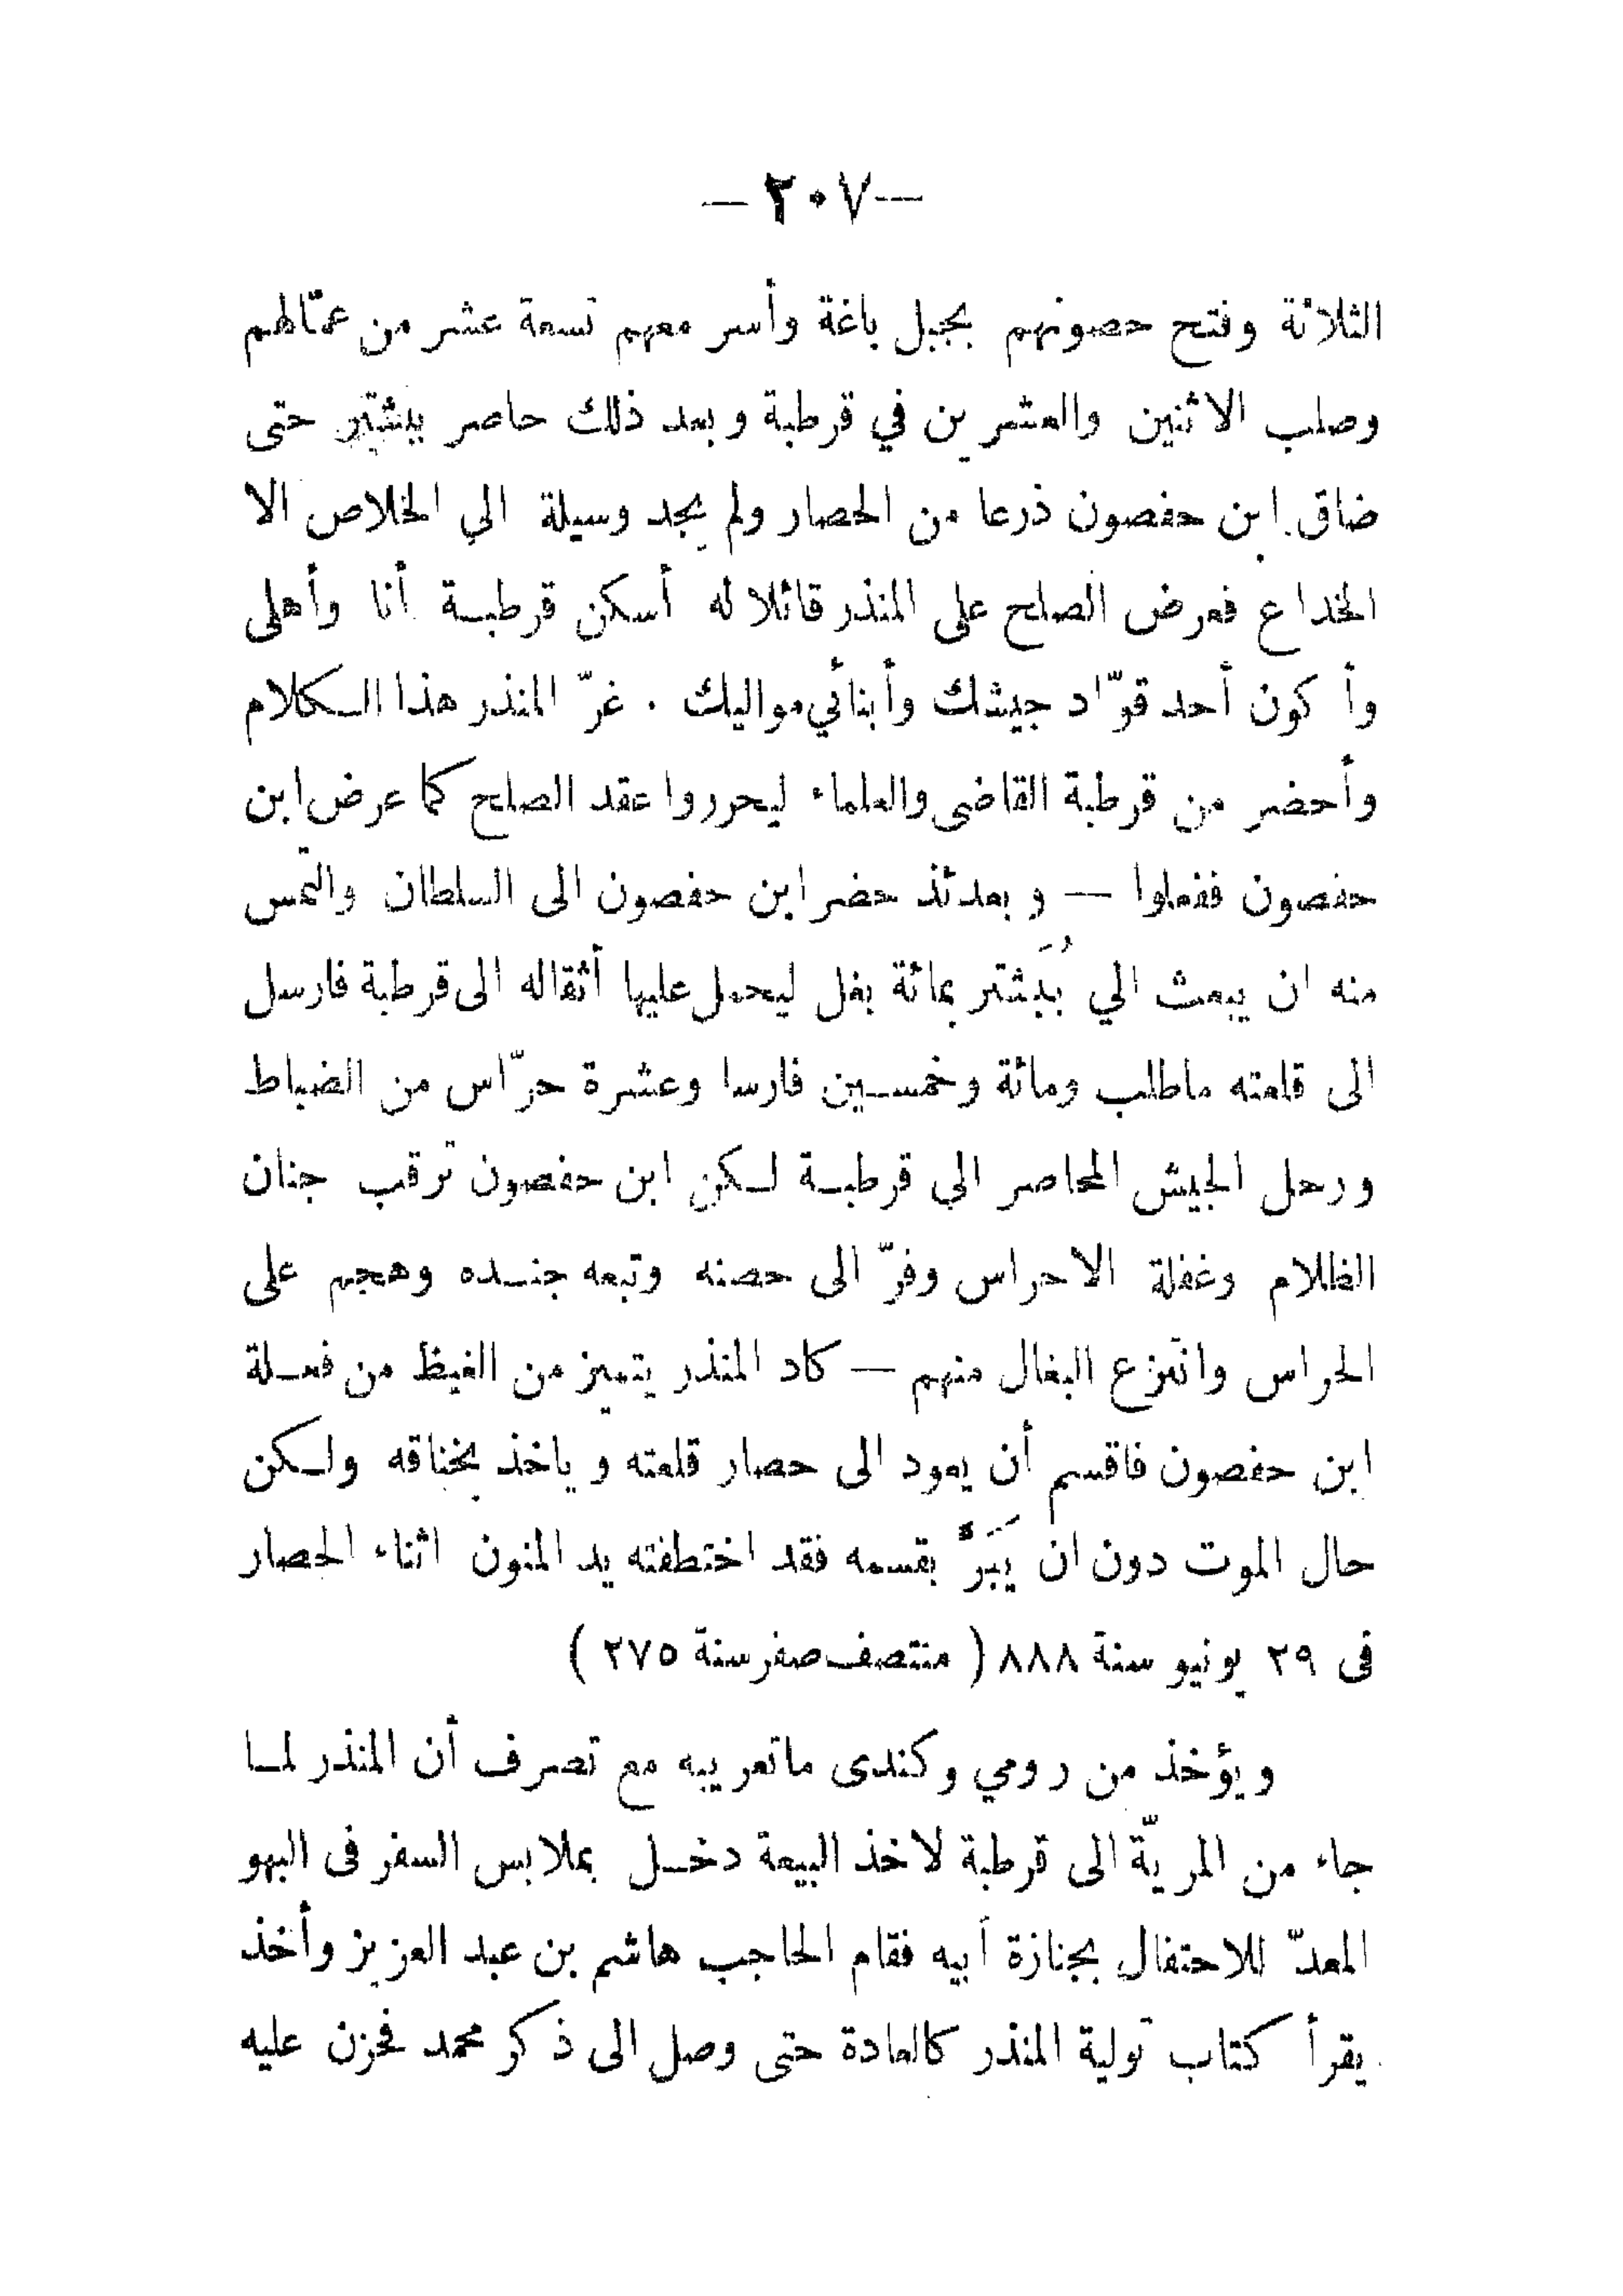 —٢٠٧—
الثلاثة وفتح حصونهم بجبل باغة وأسر معهم تسعة عشر من عمّالهم
وصلب الاثنين والعشرين في قرطبة وبعد ذلك حاصر ببشتر حتى
ضاق ابن حفصون ذرعا من الحصار ولم يجد وسيلة الي الخلاص الا
الخداع فعرض الصلح على المنذر قائلا له أسكن قرطبة أنا وأهلى
وأكون أحد قوّاد جيشك وأبنائي مواليك . غرّ المنذر هذا الكلام
وأحضر من قرطبة القاضى والعلماء ليحرروا عقد الصلح كما عرض ابن
حفصون ففعلوا — وبعدئذ حضر ابن حفصون الى السلطان والتمس
منه ان يبعث الي بُبَشتر بمائة بغل ليحمل عليها أثقاله الى قرطبة فارسل
الى قلعته ماطلب ومائة وخمسين فارسا وعشرة حرّاس من الضباط
ورحل الجيش المحاصر الي قرطبة لكن ابن حفصون ترقب جنان
الظلام وغفلة الاحراس وفرّ الى حصنه وتبعه جنده وهجم على
الحراس وانتزع البغال منهم — كاد المنذر يتميز من الغيظ من فعلة
ابن حفصون فاقسم أن يعود الى حصار قلعته وياخذ بخناقه ولكن
حال الموت دون ان يَبَرَّ بقسمه فقد اختطفته يد المنون اثناء الحصار
فى ٢٩ يونيو سنة ٨٨٨ ( منتصف صفر سنة ٢٧٥ )
ويؤخذ من رومي وكندى ماتعريبه مع تصرف أن المنذر لما
جاء من المريّة الى قرطبة لاخذ البيعة دخل بملابس السفر فى البهو
المعدّ للاحتفال بجنازة أبيه فقام الحاجب هاشم بن عبد العزيز وأخذ
يقرأ كتاب تولية المنذر كالعادة حتى وصل الى ذكر محمد فحزن عليه